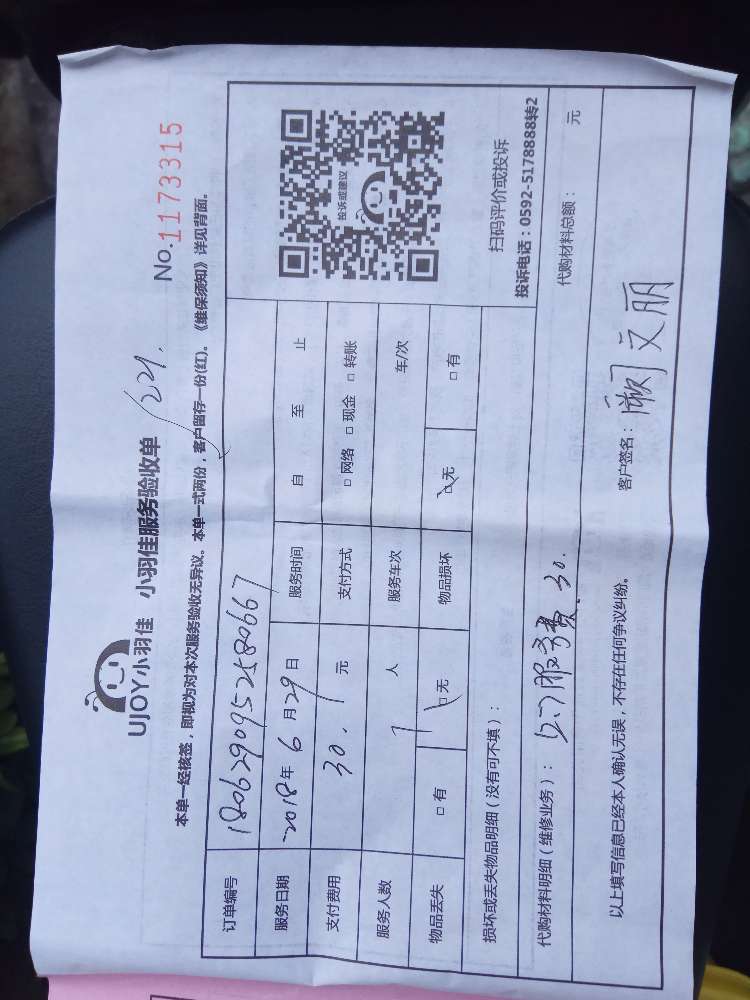 UJOY小羽佳 小羽佳服务验收单 221.
No.1173315
本单一经核签，即视为对本次服务验收无异议。本单一式两份，客户留存一份(红)。《维保须知》详见背面。
订单编号 1806290952580667
服务日期 2018年6月29日 服务时间 自 至 止
支付费用 30. 元 支付方式 □ 网络 □ 现金 □ 转账
服务人数 1 人 服务车次 车/次
物品丢失 □ 有 □ 无 物品损坏 □ 无 □ 有
投诉或建议
扫码评价或投诉
投诉电话：0592-5178888转2
损坏或丢失物品明细（没有可不填）：
代购材料明细（维修业务）： 服务费 30. 代购材料总额： 元
以上填写信息已经本人确认无误，不存在任何争议纠纷。 客户签名： 文丽